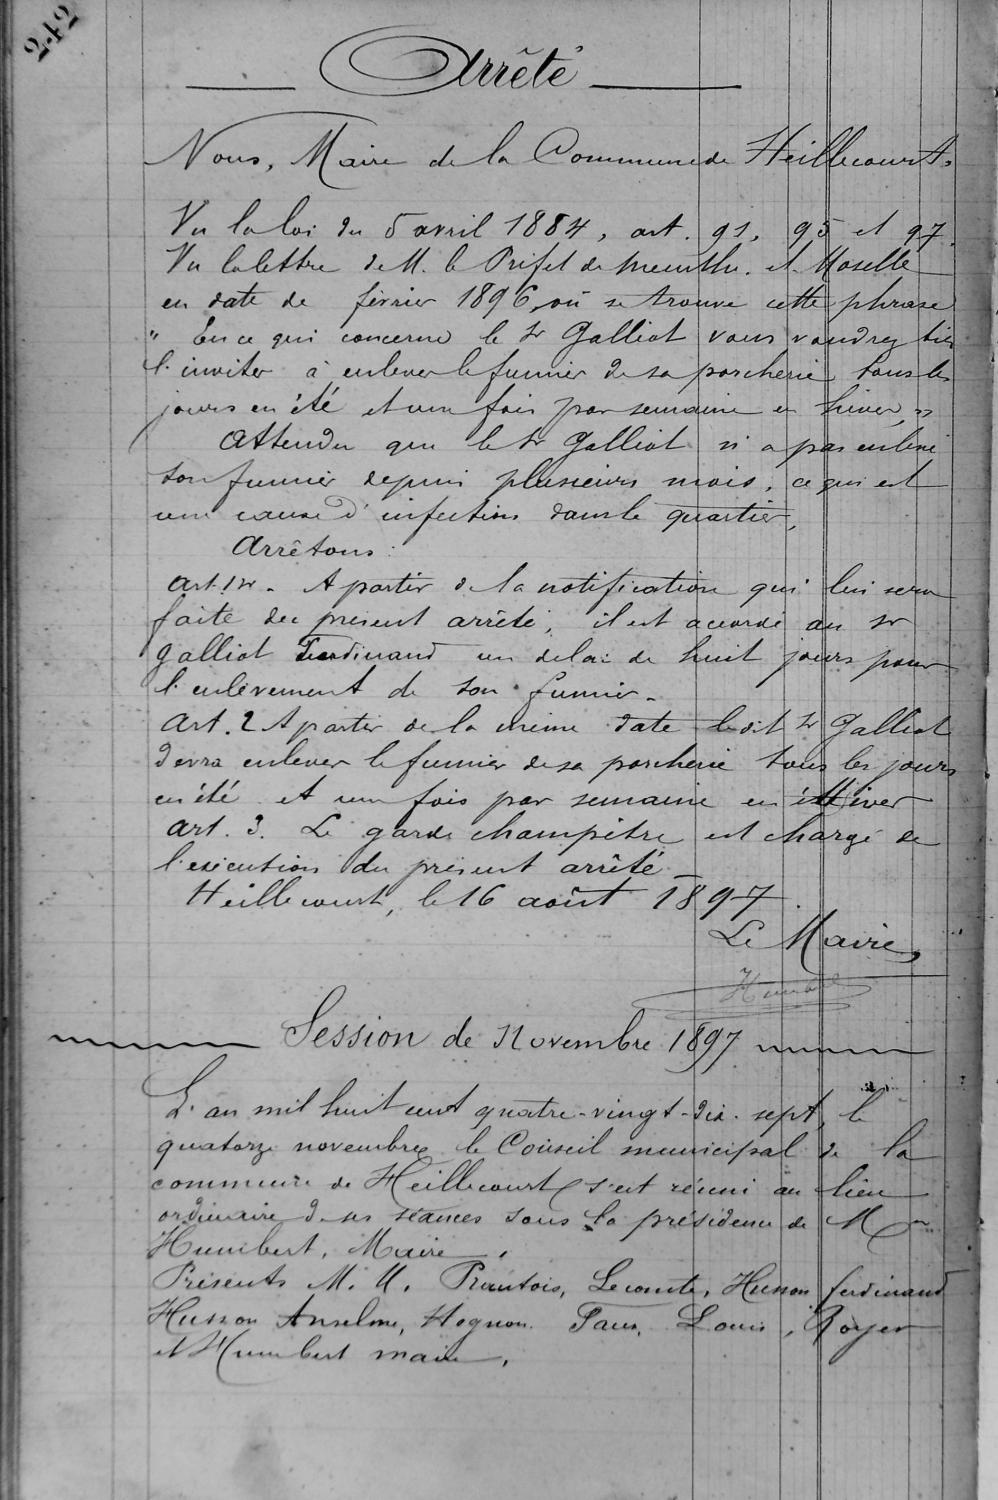 242
Arrêté
Nous, Maire de la Commune de Heillecourt,
Vu la loi du 5 avril 1884, art. 91, 95 et 97.
Vu la lettre de M. le Préfet de Meurthe. et. Moselle
en date de février 1896, où se trouve cette phrase
" En ce qui concerne le Sr Galliot vous voudrez bien
l'inviter à enlever le fumier de sa porcherie tous les
jours en été et une fois par semaine en hiver, "
Attendu que le Sr Galliot n'a pas enlevé
son fumier depuis plusieurs mois, ce qui est
une cause d'infection dans le quartier,
Arrêtons :
Art. 1er. A partir de la notification qui lui sera
faite du présent arrêté, il est accordé au Sr
Galliot Ferdinand un délai de huit jours pour
l'enlèvement de son fumier.
Art. 2 A partir de la même date ledit Sr Galliot
devra enlever le fumier de sa porcherie tous les jours
en été et une fois par semaine en hiver
Art. 3. Le garde champêtre est chargé de
l'exécution du présent arrêté
Heillecourt, le 16 août 1897.
Le Maire,
Humbert
Session de Novembre 1897
L'an mil huit cent quatre-vingt-dix-sept, le
quatorze novembre le Conseil municipal de la
commune de Heillecourt s'est réuni au lieu
ordinaire de ses séances sous la présidence de Mr
Humbert, Maire,
Présents M. M. Lecomte, Husson ferdinand
Husson Anselme, Hognon Louis, Royer
et Humbert maire,